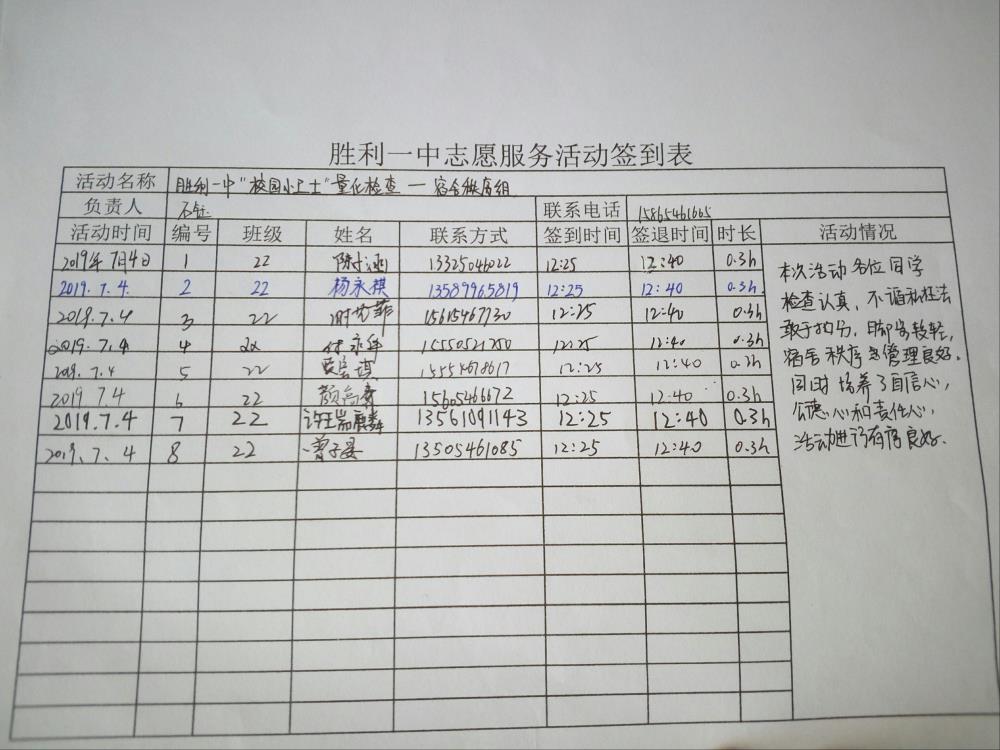 胜利一中志愿服务活动签到表
活动名称 胜利一中"校园小卫士"量化检查 — 宿舍秩序组
负责人 联系电话 15865461665
活动时间 编号 班级 姓名 联系方式 签到时间 签退时间 时长 活动情况
2019年7月4日 1 22 陈 涵 13325046022 12:25 12:40 0.3h
2019.7.4. 2 22 杨永祺 13589965819 12:25 12:40 0.3h
2019.7.4 3 22 15615467730 12:25 12:40 0.3h
2019.7.4 4 22 15550521750 12:25 12:40 0.3h
2019.7.4 5 22 15554678617 12:25 12:40 0.3h
2019 7.4 6 22 颜高 15605466672 12:25 12:40 0.3h
2019.7.4 7 22 许 麟 13561091143 12:25 12:40 0.3h
2019.7.4 8 22 曾子晏 13505461085 12:25 12:40 0.3h
本次活动各位同学
检查认真，不徇私枉法
敢于扣分，脚步较轻，
宿舍秩序 管理良好.
同时培养了自信心，
公德心和责任心，
活动进行有序良好.